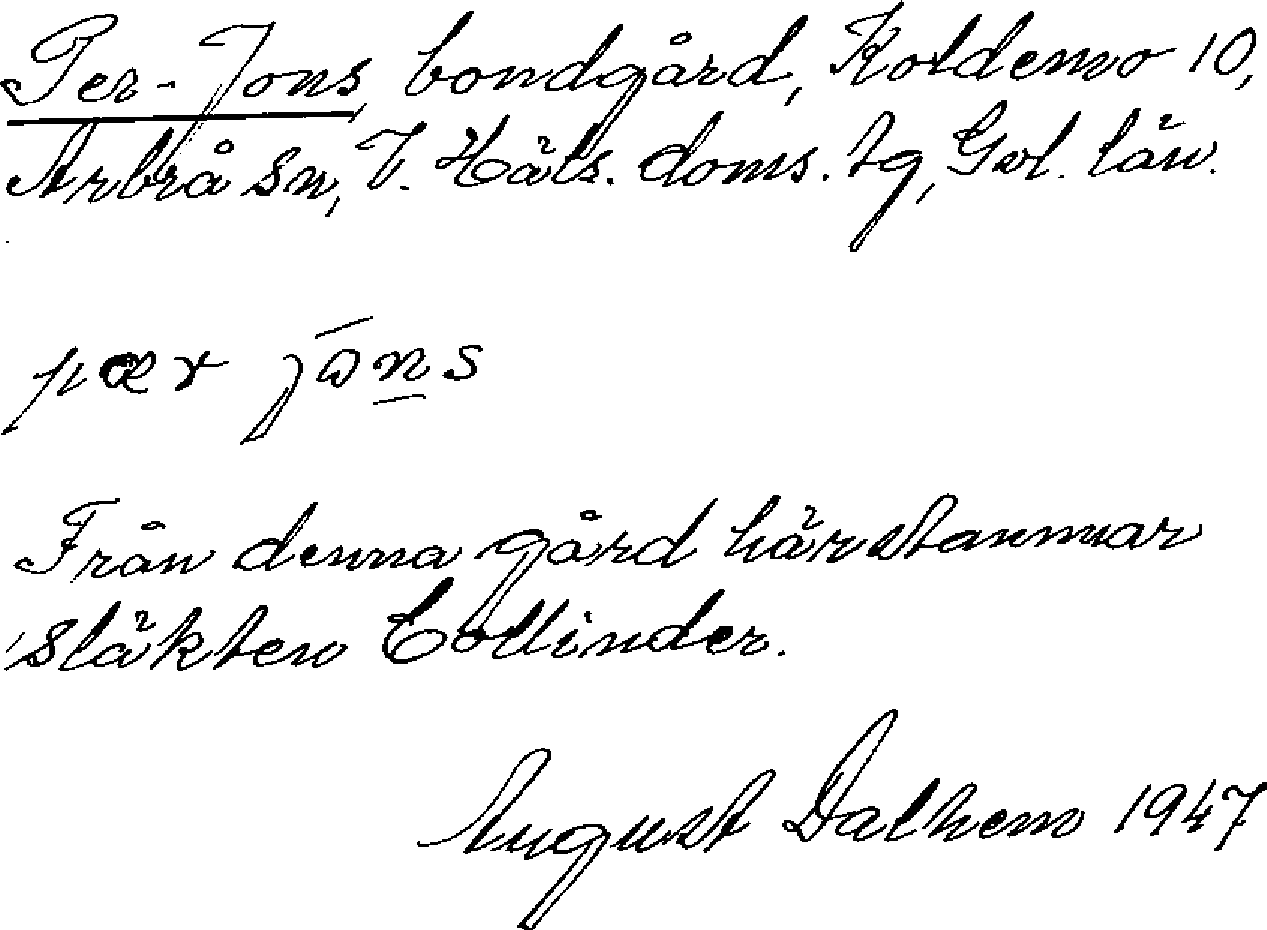 Per-Jons, bondgård, Koldemo 10,
Arbrå sn, V. Häls. doms. tg, Gvl. län.
pær jōn̲s
Från denna gård härstammar
släkten Collinder.
August Dalhem 1947